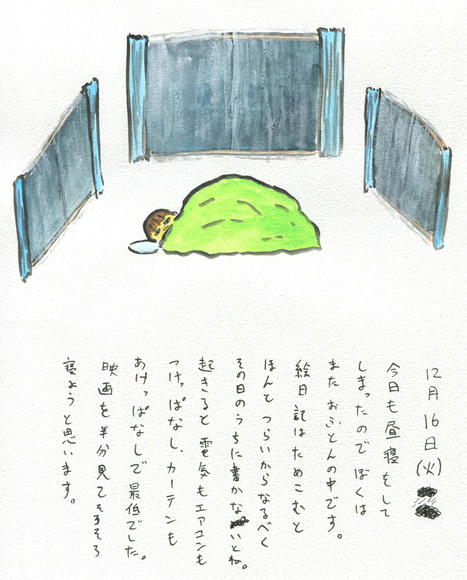 12月16日(火)
今日も昼寝をして
しまったのでぼくは
またおふとんの中です。
絵日記はためこむと
ほんとつらいからなるべく
その日のうちに書かないとね。
起きると電気もエアコンも
つけっぱなし、カーテンも
あけっぱなしで最低でした。
映画を半分見てそろそろ
寝ようと思います。